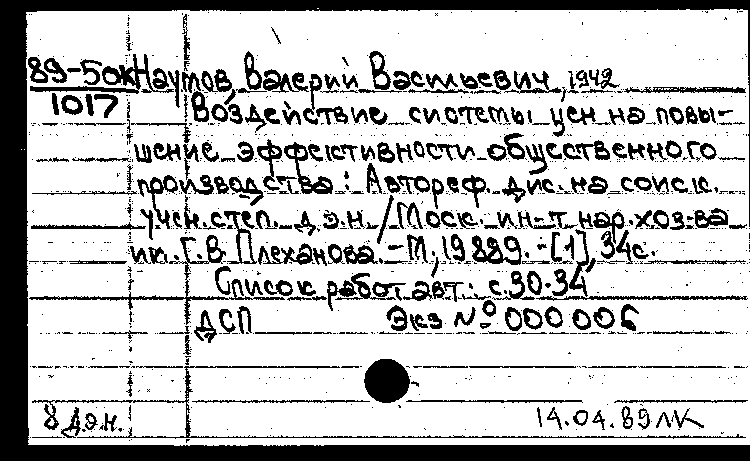 89-5ок Наумов, Валерий Васильевич, 1942
1017 Воздействие системы цен на повы-
шение эффективности общественного
производства: Автореф. дис. на соиск.
учен. степ. д.э.н. / Моск. ин-т нар. хоз-ва
им. Г.В. Плеханова. - М., 19889. - [1], 34с.
Список работ авт.: с.30-34
ДСП Экз № 000006
8 д.э.н. 14.04.89 ЛК